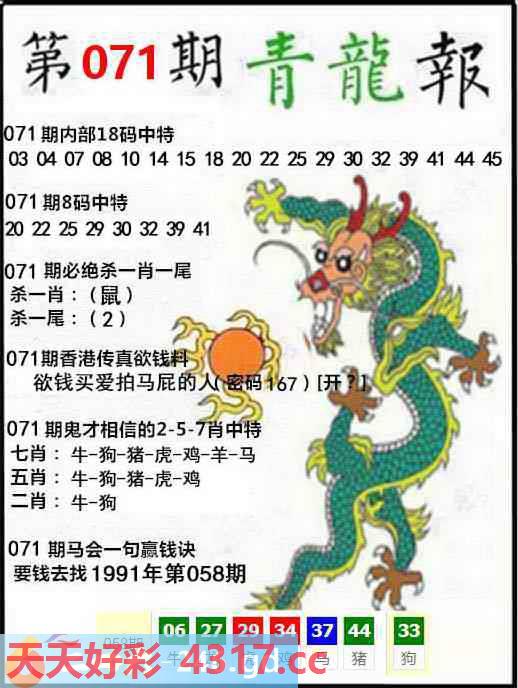 第071期青龍報
071期内部18码中特
03 04 07 08 10 14 15 18 20 22 25 29 30 32 39 41 44 45
071期8码中特
20 22 25 29 30 32 39 41
071期必绝杀一肖一尾
杀一肖：（鼠）
杀一尾：（2）
071期香港传真欲钱料
欲钱买爱拍马屁的人(密码167)[开?]
071期鬼才相信的2-5-7肖中特
七肖：牛-狗-猪-虎-鸡-羊-马
五肖：牛-狗-猪-虎-鸡
二肖：牛-狗
071期马会一句赢钱诀
要钱去找1991年第058期
058期 06 27 29 34 37 44 33
牛 鸡 马 猪 狗
天天好彩 4317.cc